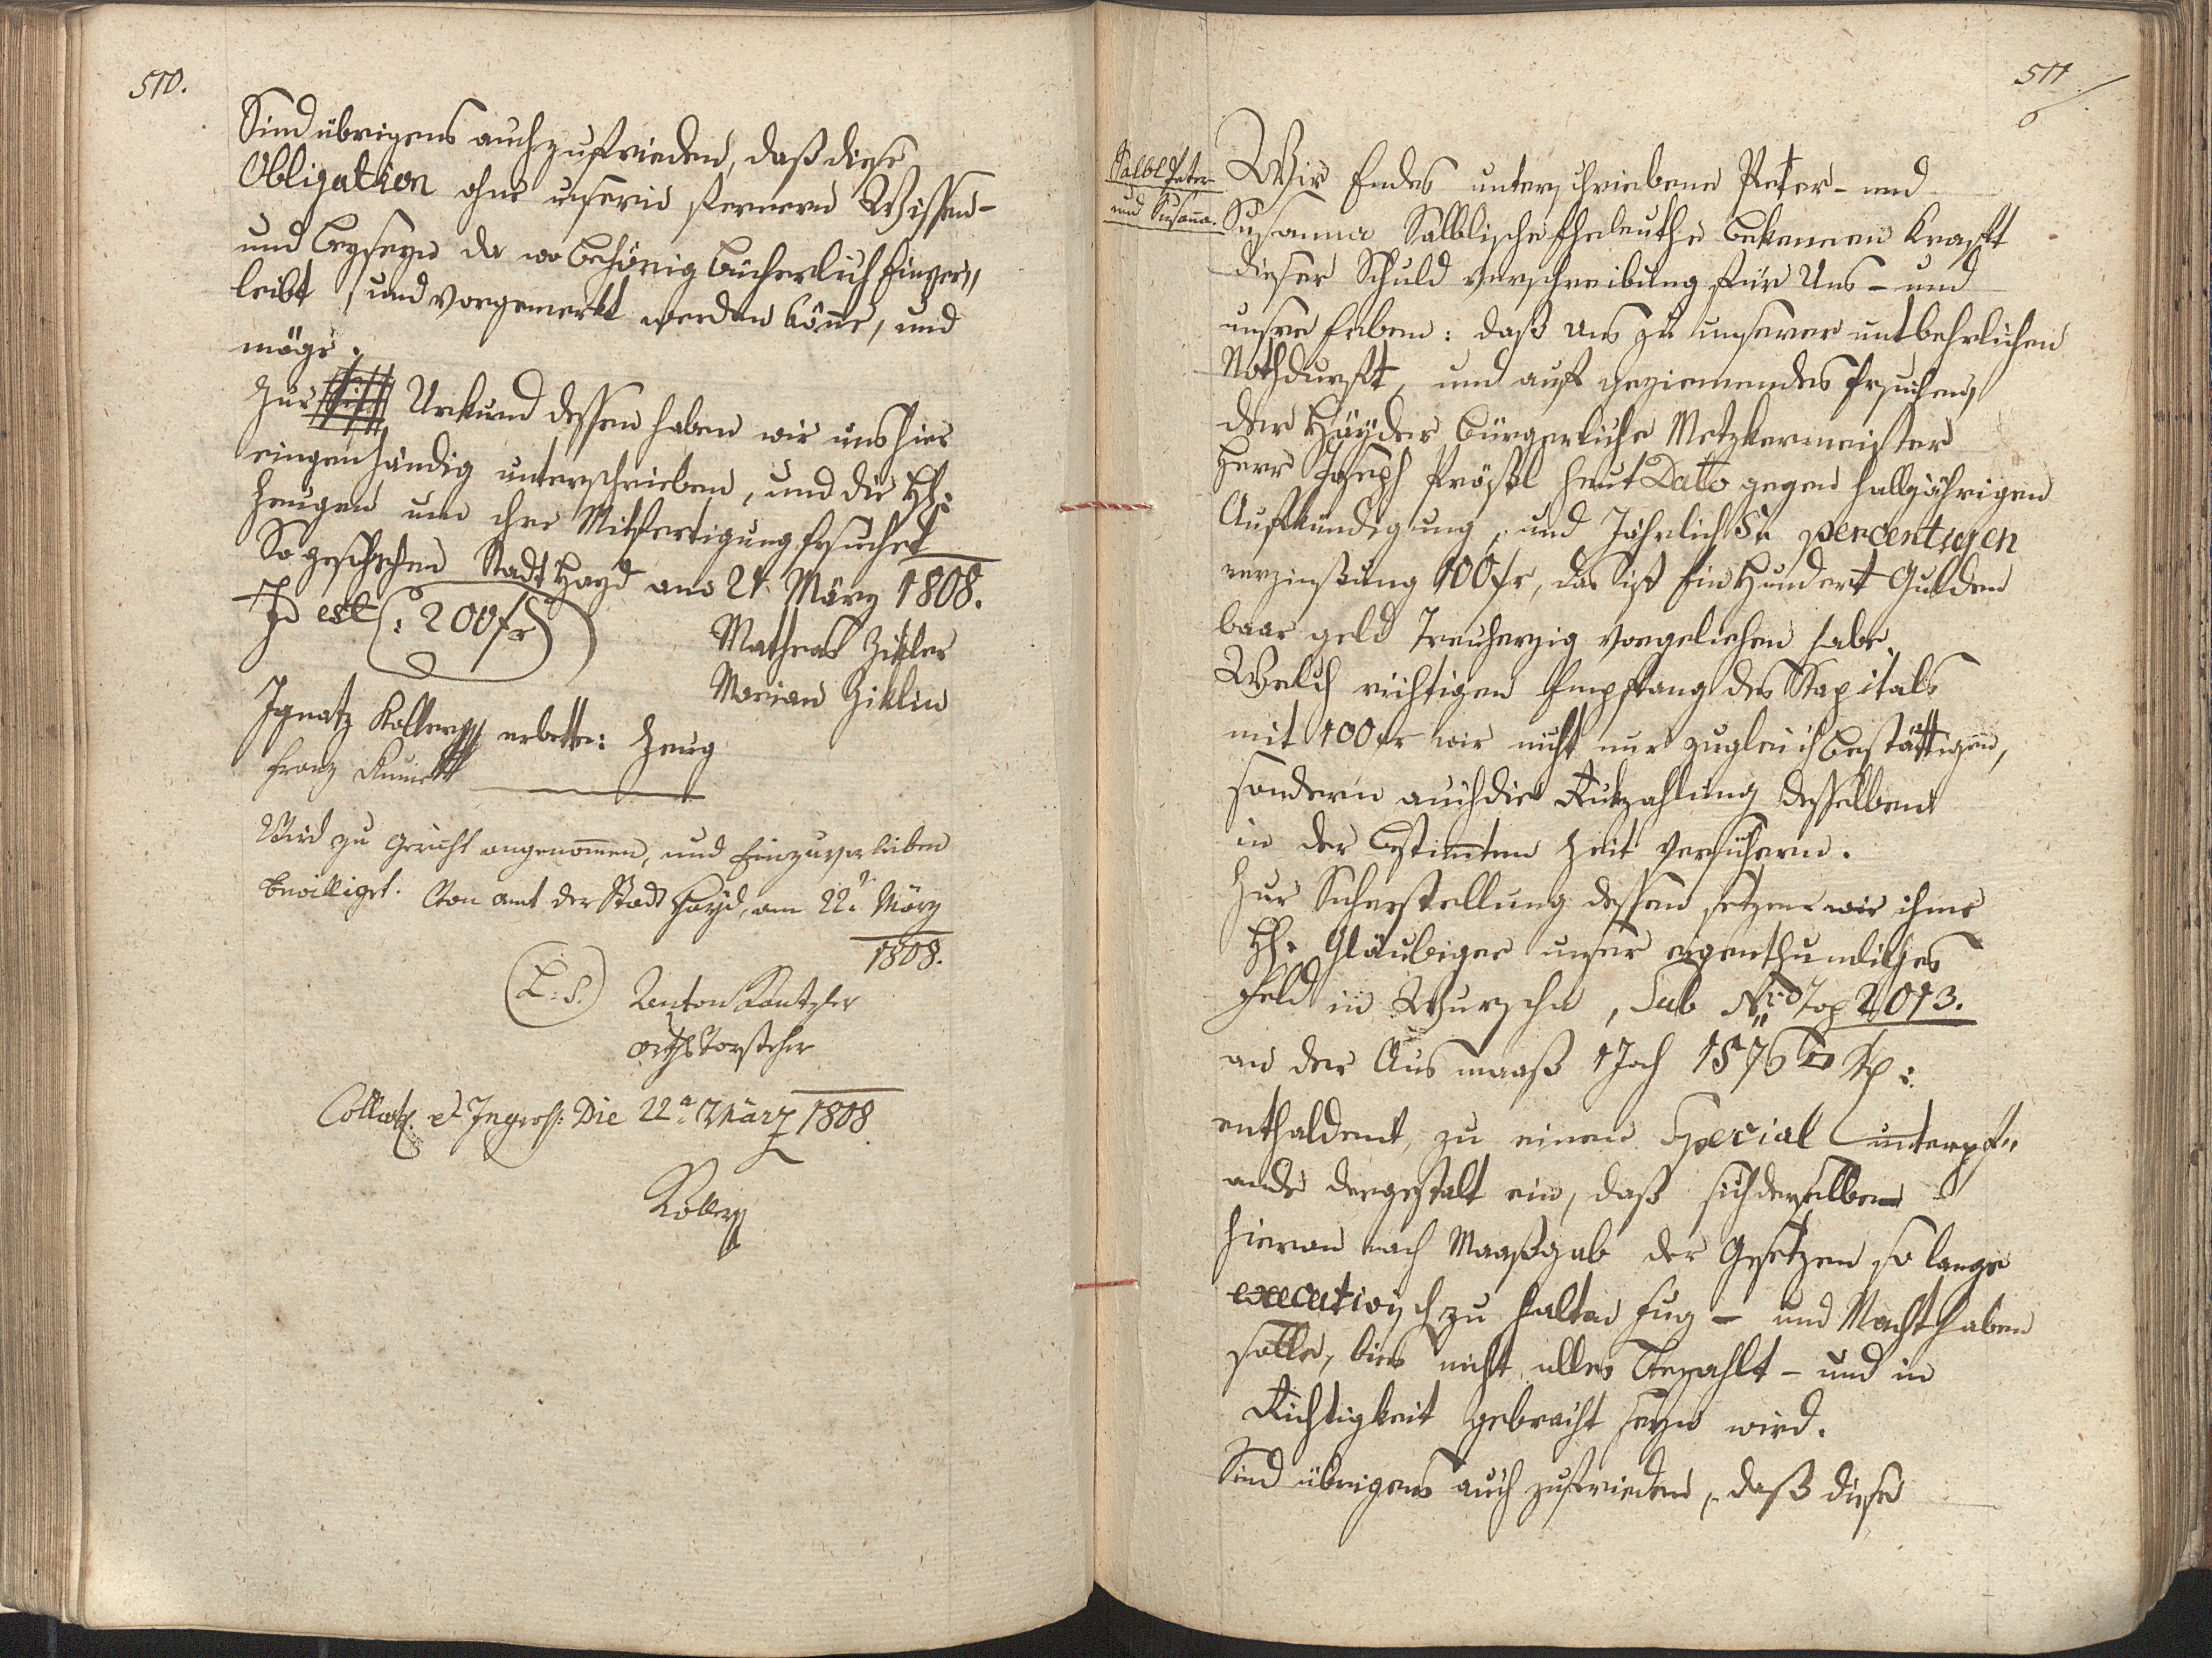 510.
Sind übrigens auch zufrieden, daß diese
Obligation ohne unserer fernern Wissen-
und Beyseyn da wo behörig bücherlich Einver„
leibt, und vorgemerkt werden könne, und
möge.
Zur Urkund dessen haben wir uns hier
eingenhändig unterschrieben, und die HH:
Zeugen um ihre Mitfertigung Ersuchet
So geschehen Stadt Hayd am 21. März 1808.
Id est (: 200 fr)
Matheas Zikler
Marian Ziklin
Ignatz Koller erbette: Zeug
Franz
Wird zu Gericht angenommen, und Einzuverleiben
bewilliget. Von Amt der Stadt Hayd, am 22. März
1808.
(L:S.) Anton
Orthsvorsteher
Collat. et Ingross: Die 22a März 1808.
Koller
511
Salbl Peter
und Susana.
Wir Endes unterschriebene Peter- und
Susanna Salblische Eheleuthe bekennen Kraft
dieser Schuld verschreibung für Uns - und
unsre Erben: daß uns zu unserer entbehrlichen
Nothdurft, und auf geziemendes Ersuchen,
der Hayder bürgerliche Metzkermeister
Herr Joseph Prößl heut Dato gegen hallbjährigen
Aufkündigung, und Jährlich 5. percentigen
verzinßung 100 fr, das ist Ein Hundert Gulden
baar geld Treuherzig vorgeliehen habe.
Welch richtigen Empfang des Kapitals
mit 100 fr wir nicht nur zugleich bestättigen,
sondern auch die Rukzahlung desselben
in der bestimten Zeit versichern.
Zur Sicherstellung dessen setzen wir ihme
HH. Gläubiger unser eigenthumliches
Feld in Wurschn, Sub Nro Top 2013.
an der Aus maaß 1 Joch 1576 □ Kl:
enthaldent, zu einen Special unterpf„
ande dergestalt ein, daß sich derselben
hievon nach Maaßgab der Gesetzen so lange
executivisch zu halten Fug - und Macht haben
solle, bies nicht alles Bezahlt - und in
Richtigkeit gebracht seyn wird.
Sind übrigens auch zufrieden, daß diese